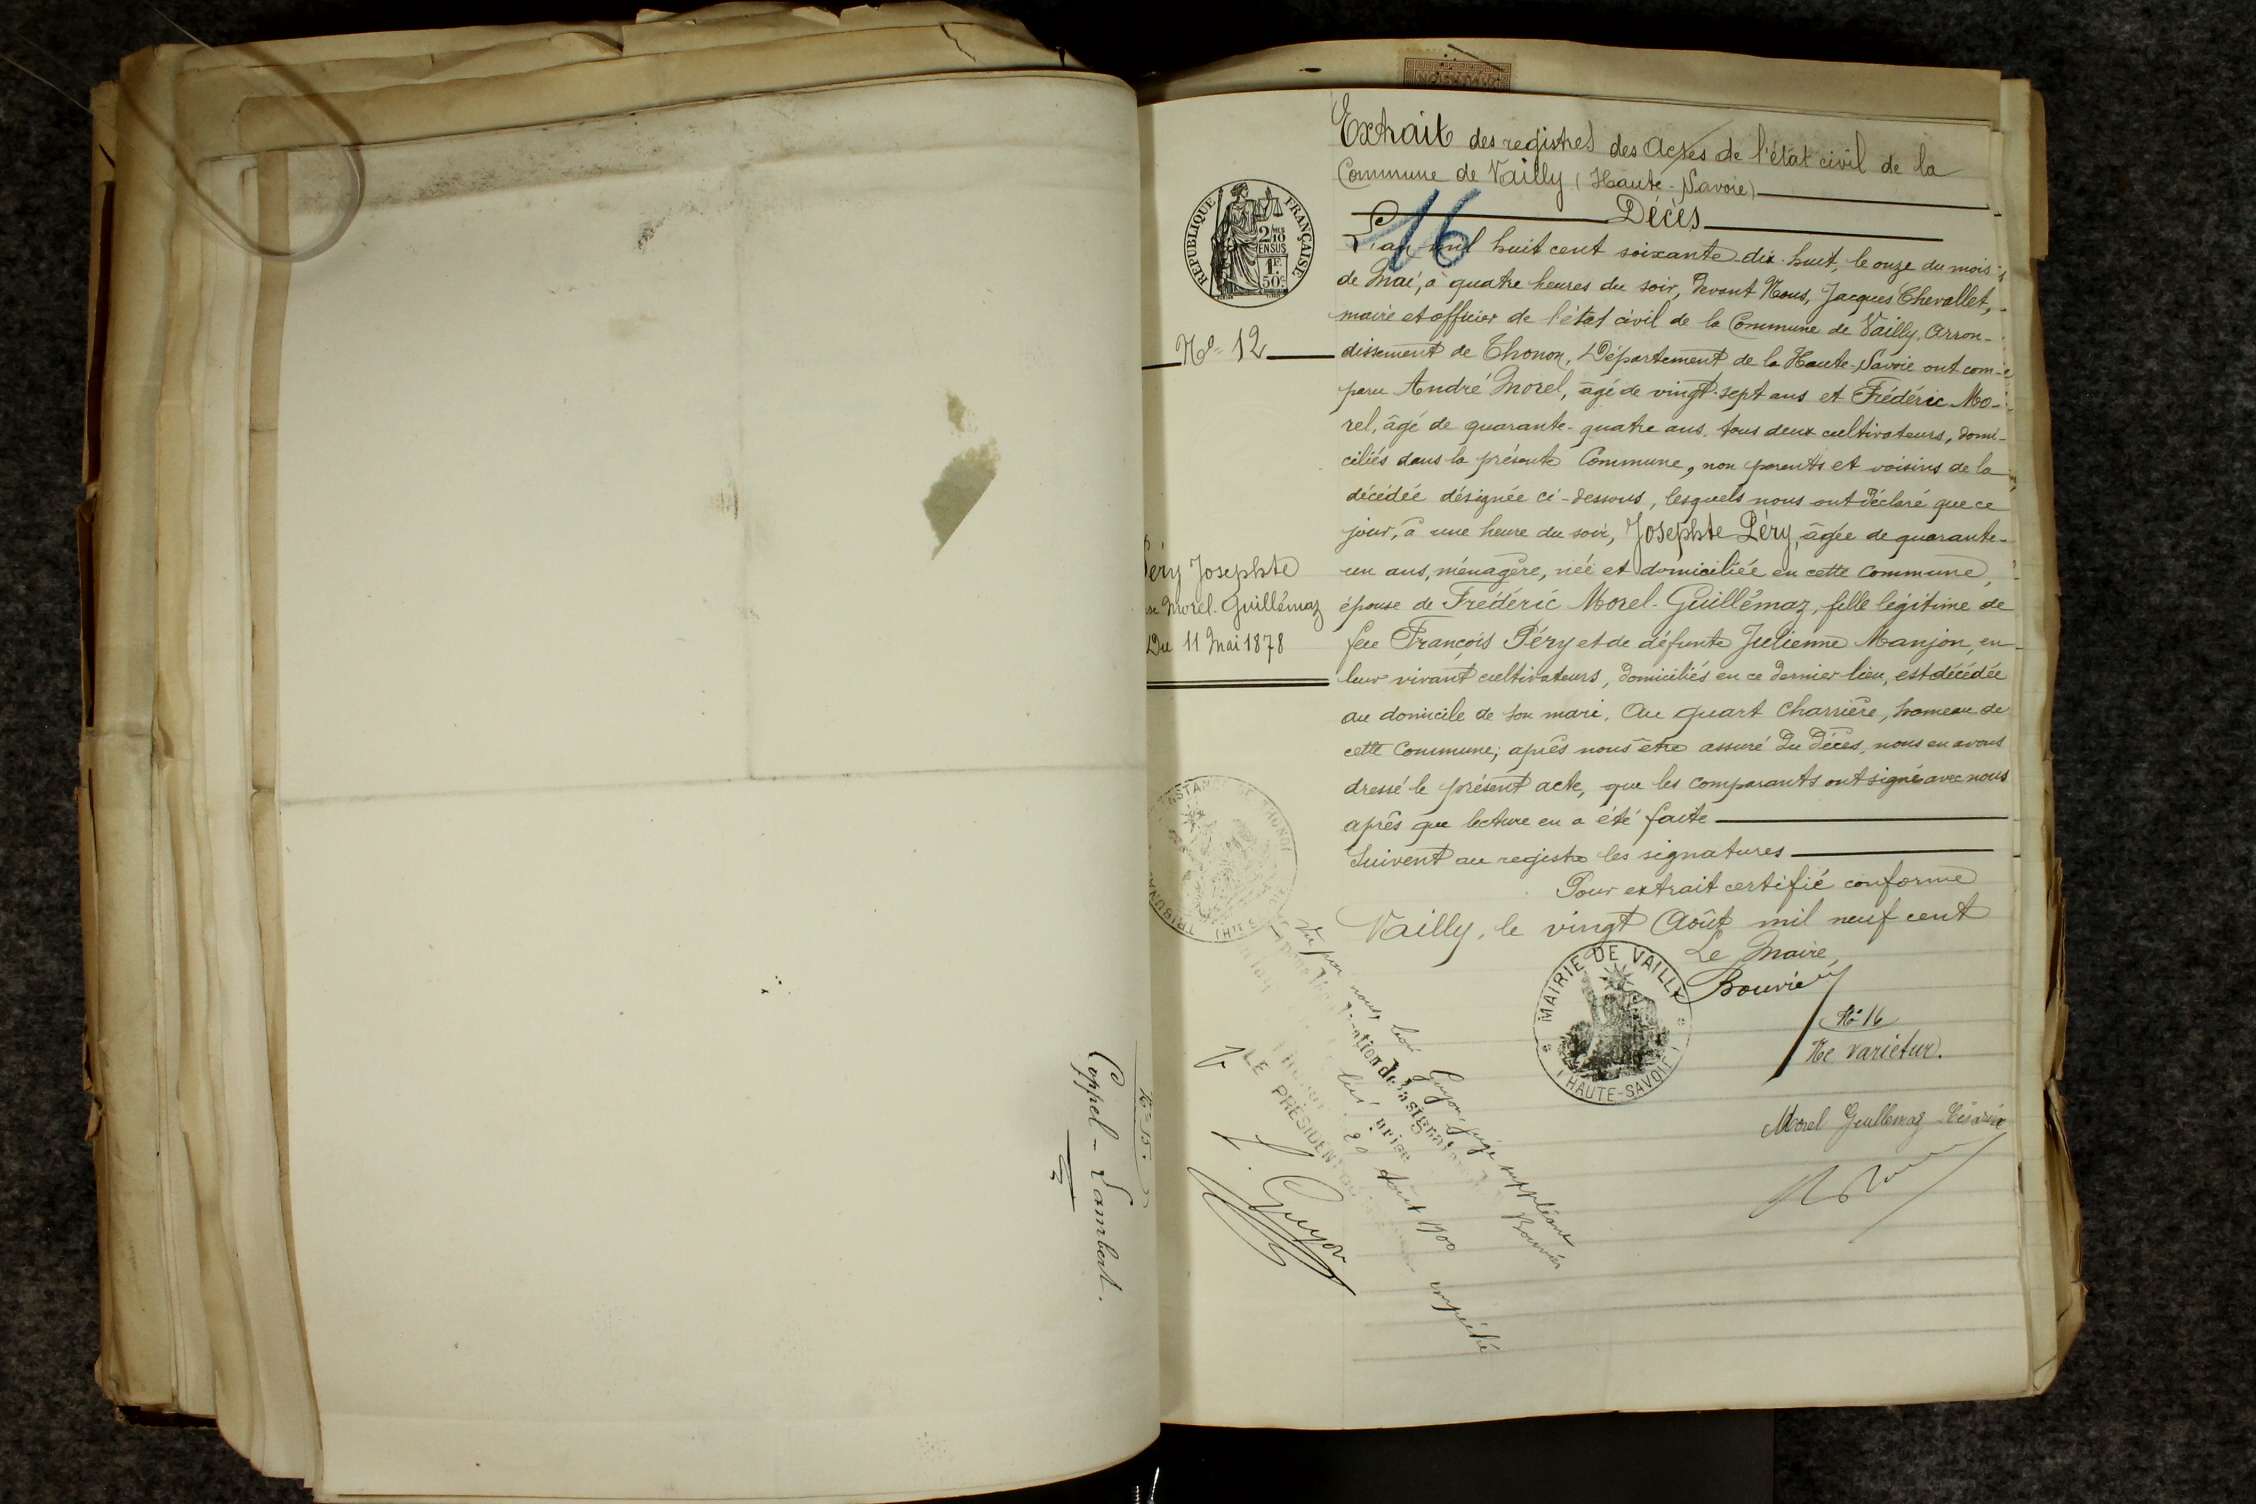 Nº 15.
Coppel-Lambert.
Extrait des registres des Actes de l'état civil de la
Commune de Vailly (Haute-Savoie)
Décès
16
RÉPUBLIQUE FRANÇAISE
2/10
EN SUS
1F
50c
Nº 12
Péry Josephte
Morel-Guillémaz
Du 11 Mai 1878
L'an mil huit cent soixante-dix-huit, le onze du mois
de Mai, à quatre heures du soir, devant Nous, Jacques Chevallet,
maire et officier de l'état civil de la Commune de Vailly, Arron-
dissement de Thonon, Département de la Haute-Savoie ont com-
paru André Morel, âgé de vingt-sept ans et Frédéric Mo-
rel, âgé de quarante-quatre ans, tous deux cultivateurs, domi-
ciliés dans la présente Commune, non parents et voisins de la
décédée désignée ci-dessous, lesquels nous ont déclaré que ce
jour, à une heure du soir, Josephte Péry, âgée de quarante-
un ans, ménagère, née et domiciliée en cette Commune,
épouse de Frédéric Morel-Guillémaz, fille légitime de
feu François Péry et de défunte Julienne Manjon, en
leur vivant cultivateurs, domiciliés en ce dernier lieu, est décédée
au domicile de son mari, Au quart Charrière, hameau de
cette Commune; après nous être assuré du décès, nous en avons
dressé le présent acte, que les comparants ont signé avec nous
après que lecture en a été faite
Suivent au registre les signatures
Pour extrait certifié conforme
Vailly, le vingt Août mil neuf cent
Le Maire,
Bouvier
MAIRIE DE VAILLY
(HAUTE-SAVOIE)
Nº 16
Ne varietur.
Morel Guillemaz
Vu par nous, Guyon, juge suppléant
de la signature Bouvier
20 Août 1900
LE PRÉSIDENT empêché
Guyon